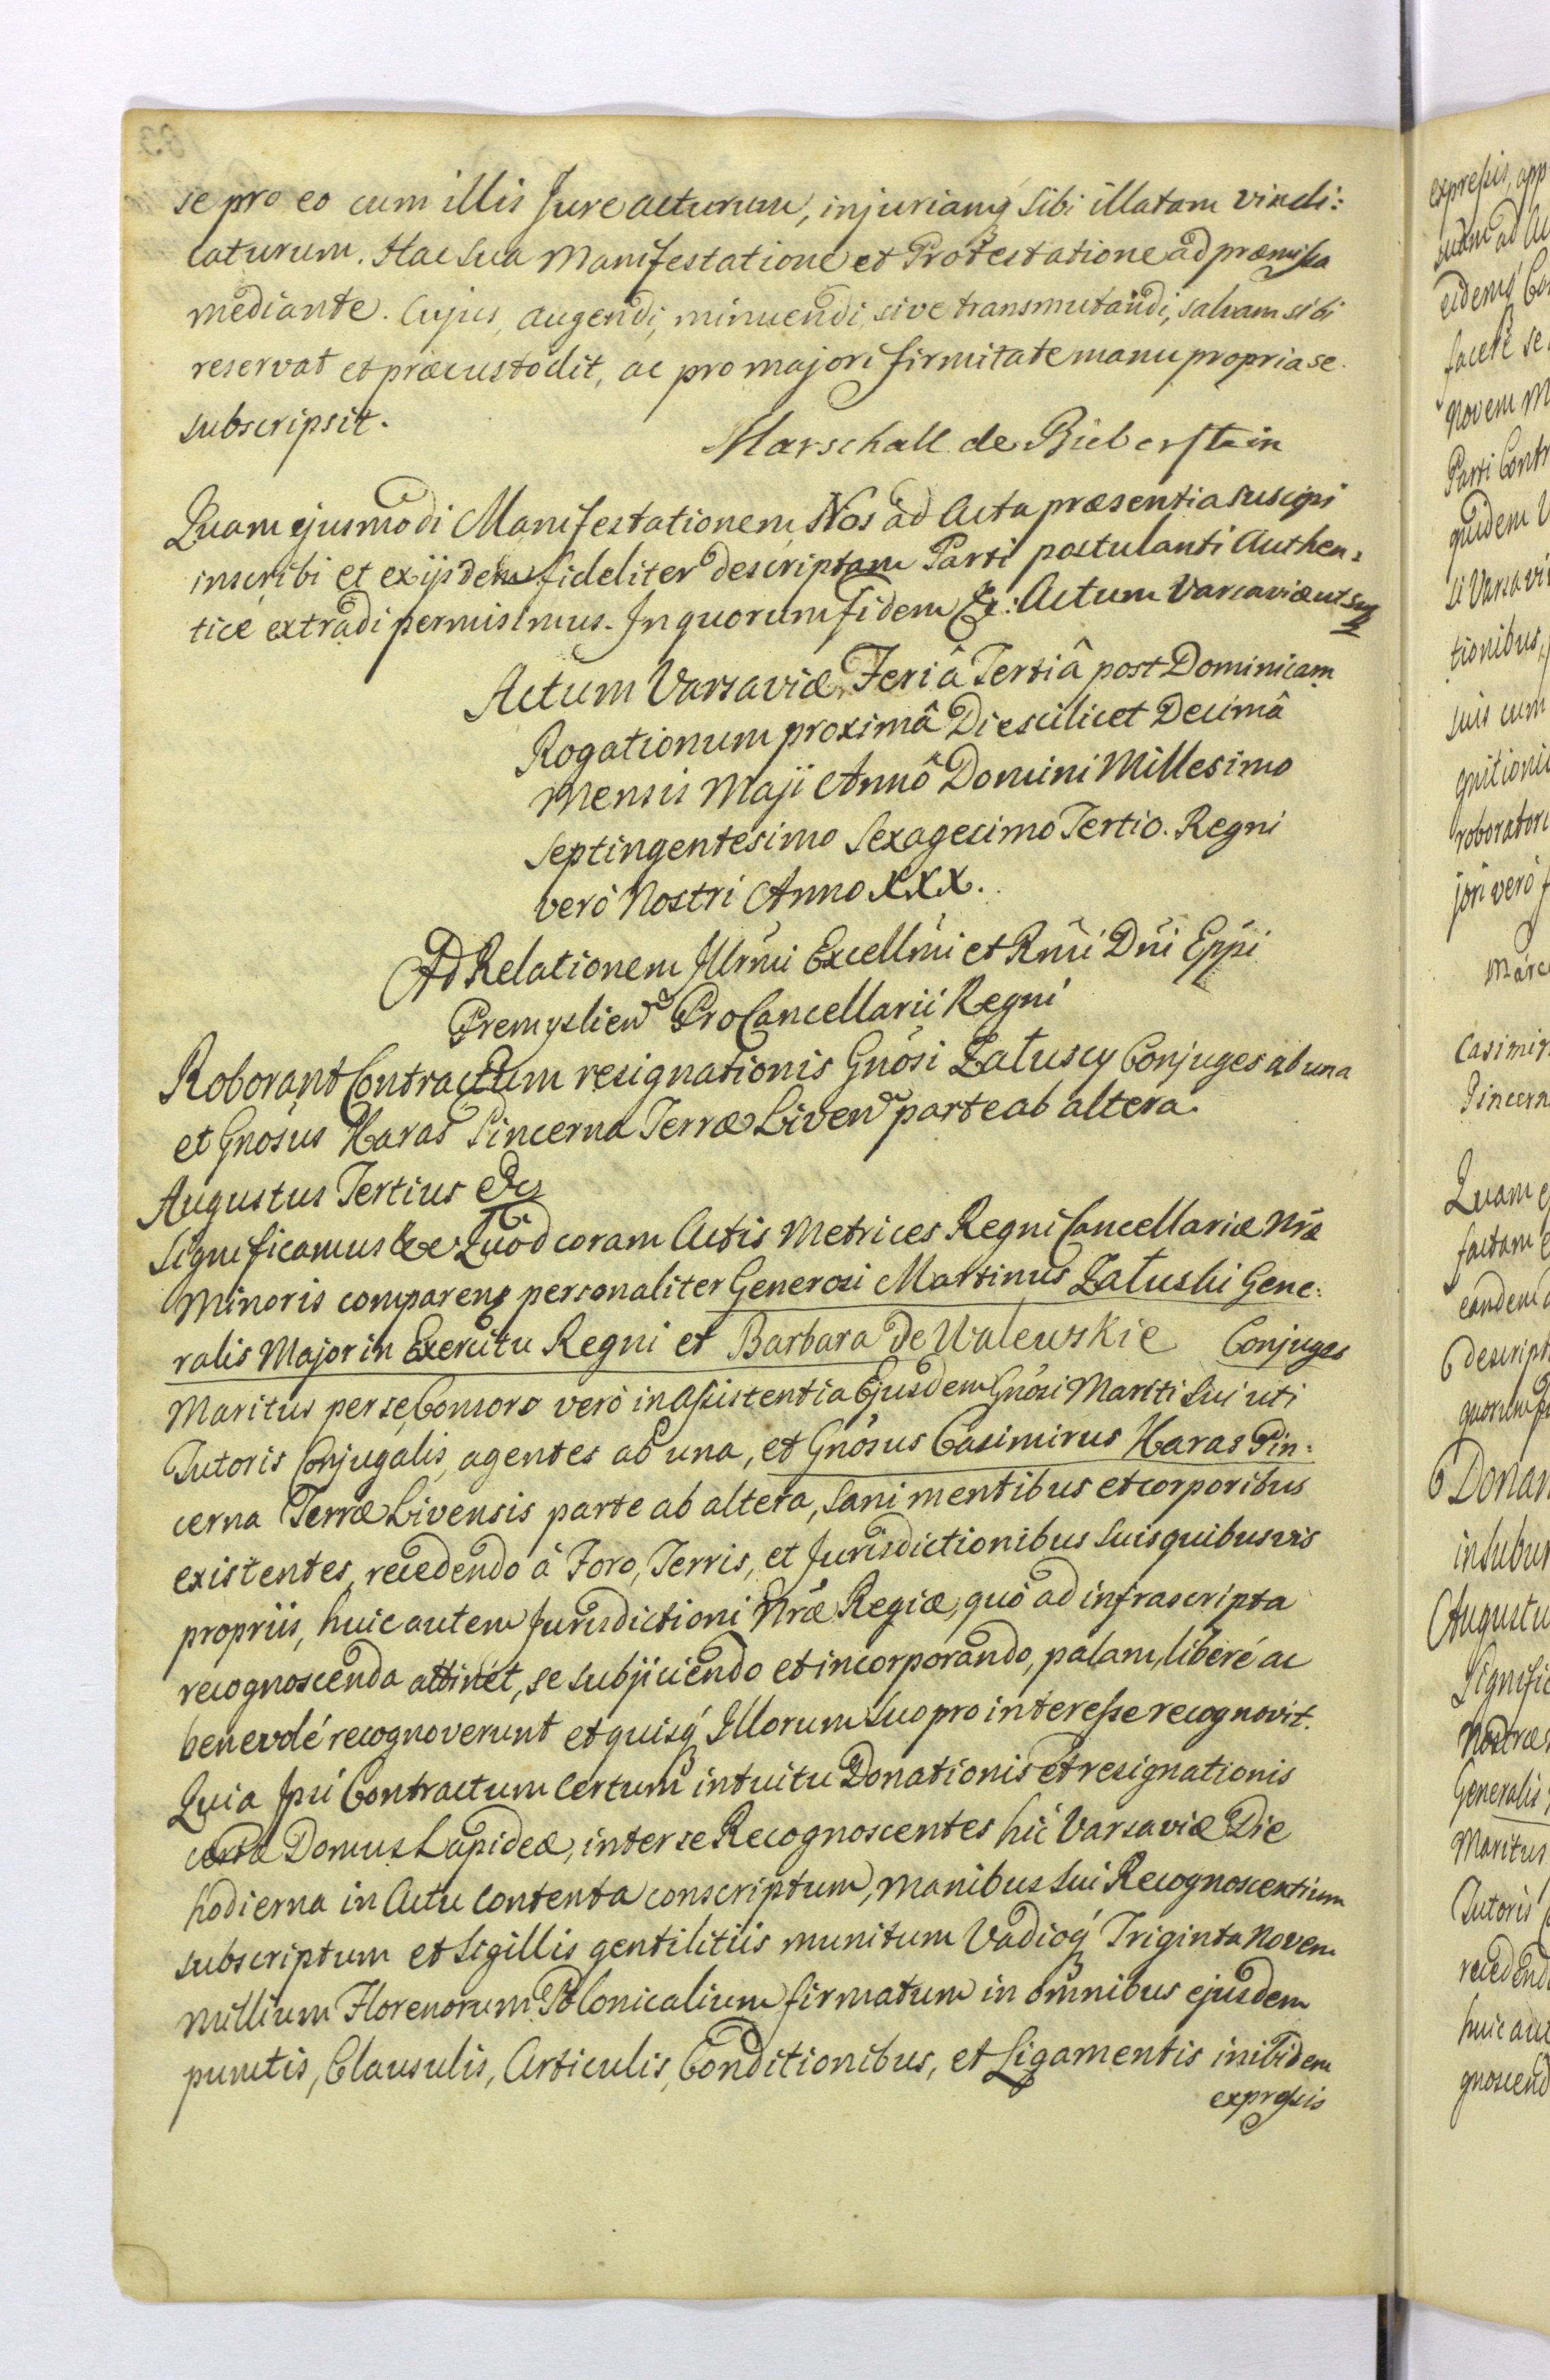 se pro eo cum illis Jure acturum, injuriamq́ sibi illatam vindi:
caturum. Hac sua Manifestatione et Protestatione ad præmissa
mediante. Cujus, augendi, minuendi, sive transmutandi, salvam sibi
reservat et præcustodit, ac pro majori firmitate manu propria se
subscripsit.
Marschall de Bieberstein
Quam ejusmodi Manifestationem Nos ad Acta præsentia suscipi
inscribi et ex ijsdem fideliter descriptam Parti postulanti Authen:
ticé extradi permisimus. In quorum fidem &c: Actum Varsaviæ ut sup
Actum Varsaviæ Feriâ Tertiâ post Dominicam
Rogationum proximâ Die scilicet Decimâ
Mensis Maji Annô Domini Millesimo
Septingentesimo Sexagesimo Tertio. Regni
verò Nostri Anno XXX.
Ad Relationem Illrm̃i Excellm̃i et Rm̃i Dñi Epp̃i
Premyslien ProCancellarii Regni
Roborant Contractum resignationis Gnõsi Załuscy Conjuges ab una
et Gnõsus Haras Pincerna Terræ Liven parte ab altera.
Augustus Tertius &c
Significamus &c Quòd coram Actis Metrices Regni Cancellariæ Nrã
Minoris comparens personaliter Generosi Martinus Załuski Gene:
ralis Major in Exercitu Regni et Barbara de Walewskie Conjuges
Maritus per se, Consors verò in assistentia Ejusdem Gnõsi Mariti sui uti
Tutoris Conjugalis, agentes ab una, et Gnõsus Casimirus Haras Pin:
cerna Terræ Livensis parte ab altera, sani mentibus et corporibus
existentes, recedendo à Foro, Terris, et Jurisdictionibus suis quibusvis
propriis, huic autem Jurisdictioni Nrã Regiæ, quò ad infrascripta
recognoscenda attinet, se subjiciendo et incorporando, palam, liberé ac
benevolé recognoverunt et quisq́ Illorum suo pro interesse recognovit.
Quia Ipsi Contractum certum intuitu Donationis et resignationis
certæ Domus Lapideæ, inter se Recognoscentes hic Varsaviæ Die
hodierna in Actu contenta conscriptum, manibus sui Recognoscentium
subscriptum et Sigillis gentilitiis munitum Vadioq́ Triginta Novem
millium Florenorum Polonicalium firmatum in omnibus ejusdem
punctis, Clausulis, Articulis, Conditionibus, et Ligamentis inibidem
expressis